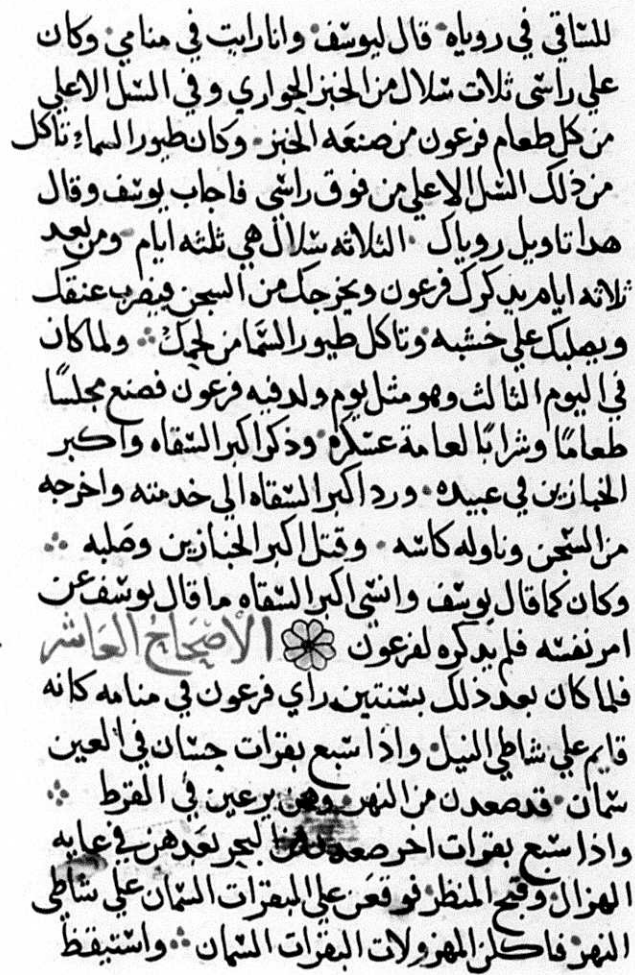 للساقي في روياه قال ليوسف وانا رايت في منامي وكان
علي راسي ثلات سلال من الخبز الجواري وفي السل الاعلي
من كل طعام فرعون من صنعه الخبز وكان طيور السماء تاكل
من ذلك السل الاعلي من فوق راسي فاجاب يوسف وقال
هدا تاويل روياك الثلاثه سلال هي ثلثه ايام ومن بعد
ثلاثه ايام يدكرك فرعون ويخرجك من السجن فيضرب عنقك
ويصلبك علي خشبه وتاكل طيور السما من لحمك ولما كان
في اليوم الثالث وهو مثل يوم ولد فيه فرعون فصنع مجلسا
طعاما وشرابا لعامة عسكره وذكر اكبر السقاه واكبر
الخبازين في عبيده ورد اكبر السقاه الي خدمته واخرجه
من السجن وناوله كاسه وقتل اكبر الخبازين وصلبه
وكان كما قال يوسف وانسي اكبر السقاه ما قال يوسف عن
امر نفسه فلم يدكره لفرعون الاصحاح العاشر
فلما كان بعد ذلك بسنتين راي فرعون في منامه كانه
قايم علي شاطي النيل واذا سبع بقرات حسان في العين
سمان قد صعدن من النهر وهن يرعين في القرط
واذا سبع بقرات اخر صعدن من البحر بعدهن في غايه
الهزال وقبح المنظر فوقعن علي البقرات السمان علي شاطي
النهر فاكلن المهزولات البقرات السمان واستيقظ